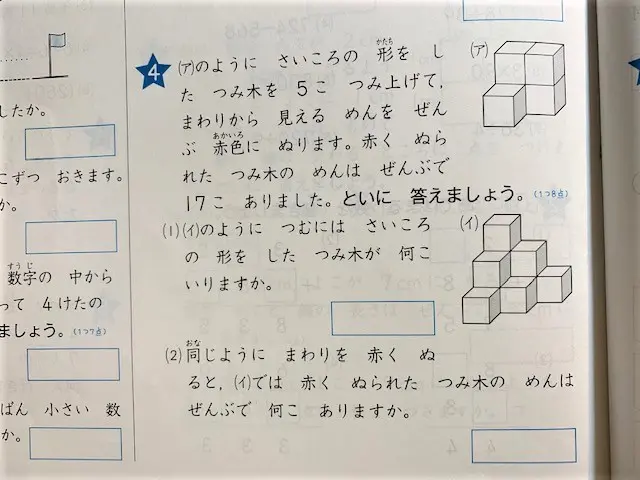 したか。
こずつ おきます。
か。
数字の 中から
すうじ
って 4けたの
ましょう。(1つ7点)
ばん 小さい 数
か。
4
(ア)のように さいころの 形を し
かたち
た つみ木を 5こ つみ上げて,
まわりから 見える めんを ぜん
ぶ 赤色に ぬります。赤く ぬら
あかいろ
れた つみ木の めんは ぜんぶで
17こ ありました。といに 答えましょう。(1つ8点)
(ア)
(1)(イ)のように つむには さいころ
の 形を した つみ木が 何こ
いりますか。
(イ)
(2)同じように まわりを 赤く ぬ
おな
ると,(イ)では 赤く ぬられた つみ木の めんは
ぜんぶで 何こ ありますか。